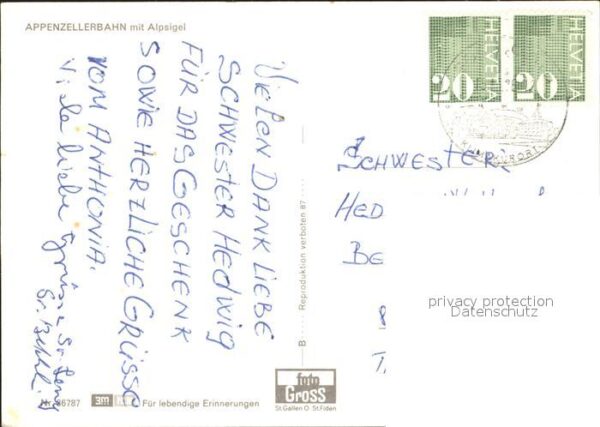 APPENZELLERBAHN mit Alpsigel
VIELEN DANK LIEBE
SCHWESTER HEDWIG
FÜR DAS GESCHENK
SOWIE HERZLICHE GRÜSSE
VOM ANTHONIA.
Viele liebe Grüsse Sr.
Sr.
Nr. 36787 3M Für lebendige Erinnerungen
B
Reproduktion verboten 87
foto
GROSS
St.Gallen O St.Fiden
HELVETIA
20
HELVETIA
20
KURORT
SCHWESTER
HED
BE
privacy protection
Datenschutz